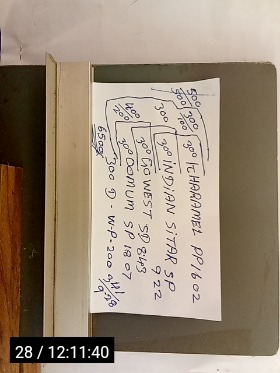 500 300
500 700
30° KHARAMEL PP1602
300
30° INDIAN SITAR SP
922
400
30° GO WEST SP 8143
30° DOMUM SP 1807
6500
300 D - W.P - 200
28 / 12:11:40